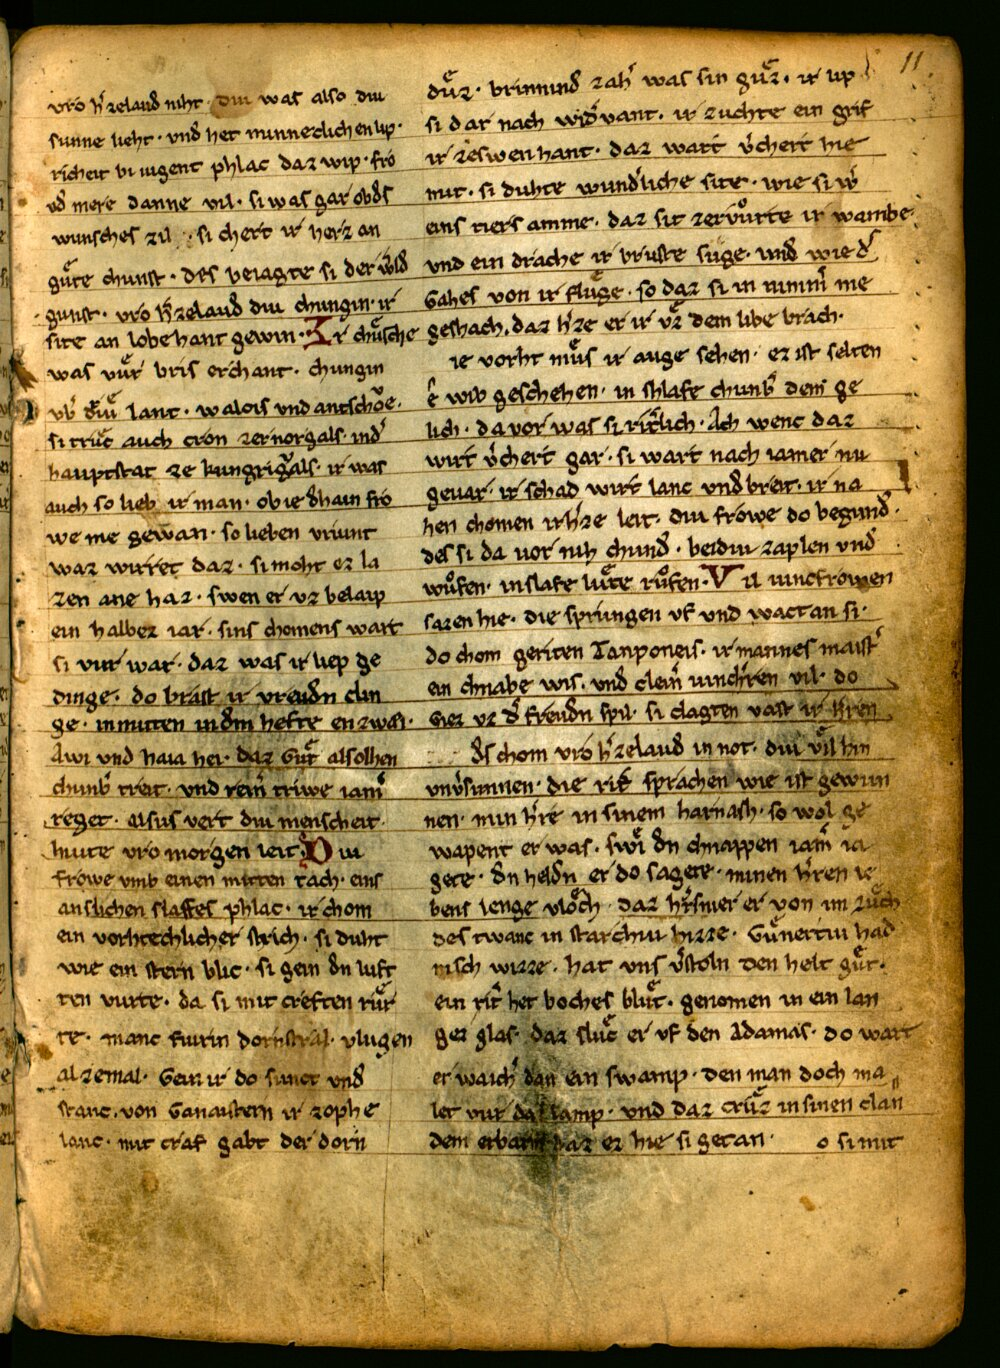 11
vro h'zelaud niht. Diu was also diu
sunne lieht. und het minneclichen lip.
richeit bi iugent phlac daz wip. fro
vd mere danne vil. si was gar obds
wunsches zil. si chert ir herz an
gůte chunst. des beiagte si der w'ld
gunst. vro h'zelaud diu chungin. ir
site an lobe hant gewin. Ir chůsche
was vůr bris erchant. chungin
vb' driu lant. walois und antschoͤe.
si trůc auch cron zernorgals. ind'
hauptstat ze kungrigals. ir was
auch so lieb ir man. ob ie dhain fro
we me gewan. so lieben vriunt
waz wirret daz. si moht ez la
zen ane haz. swen er vz belaip
ein halbez iar. sins chomens wart
si vur war. daz was ir liep ge
dinge. do brast ir vreudn clin
ge. inmitten indm hefte enzwai.
Awi und haia hei. daz gůt alsolhen
chunb' treit. und rein' triwe iam'
reget. alsus vert diu menscheit.
hiute vro morgen leit. Diu
frowe vmb einen mitten tach. eins
anslichen slaffes phlac. ir chom
ein vorhtechlicher strich. si duht
wie ein stern blic. si gein dn luft
ten vurte. da si mit creften růr
te. manc fiurin dornstral. vlugen
alzemal. Gein ir do sunct und
stanc. von Ganaistern ir zophe
lanc. mit craf gabt der dorn
důz. brinnind zah' was sin gůz. ir lip
si dar nach wid'vant. ir zuchte ein grif
ir zeswen hant. daz wart v'chert hie
mit. si duhte wund'liche site. wie si w'
eins tiers amme. daz sit zervůrte ir wambe.
und ein drache ir bruste suge. und wie d'
Gahes von ir fluge. so daz si in nimm' me
geshach. daz h'ze er ir vz dem libe brach.
ie vorht můs ir auge sehen. ez ist selten
ê wib geschehen. in shlafe chunb' dem ge
lich. da vor was si rit'lich. Ach wenc daz
wirt v'chert gar. si wart nach iamer nu
gevar. ir schad wirt lanc und breit. ir na
hen chomen irh'ze leit. diu frowe do begund'.
des si da vor nih chund'. beidiu zaplen und
wůfen. inslafe lůte růfen. Vil iuncfrowen
sazen hie. die sprungen vf und wactan si.
do chom geriten Tanponeis. ir mannes maist'
ein chnabe wis. und clein' iunch'ren vil. do
giez vz d' freudn spil. si clagten vast ir h'ren
ds chom vro h'zelaud in not. diu vil hin
unv'sunnen. die rit' sprachen wie ist gewun
nen. min h're in sinem harnash. so wol ge
wapent er was. swi dn chnappen iam' ia
gete. dn heldn er do sagete. minen h'ren le
bens lenge vloͦch. daz h'snier er von im zůch
des twanc in starchiu hizze. Gunertiu had
nisch wizze. hat uns v'stoln den helt gůt.
ein rit' het boches blůt. genomen in ein lan
gez glas. daz sluc er vf den Adamas. do wart
er waich' dan ein swamp. den man doch ma
let vur daz lamp. und daz crůz insinen clan
dem erbarm daz ez hie si getan. o si mit